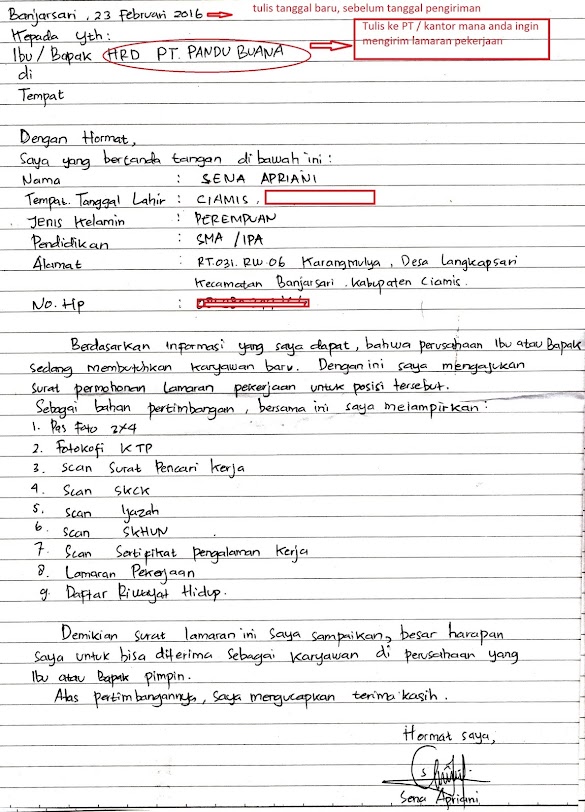 Banjarsari, 23 Februari 2016 tulis tanggal baru, sebelum tanggal pengiriman
Kepada Yth:
Ibu / Bapak HRD PT. PANDU BUANA
Tulis ke PT / kantor mana anda ingin
mengirim lamaran pekerjaan
di
Tempat
Dengan Hormat,
Saya yang bertanda tangan di bawah ini :
Nama : SENA APRIANI
Tempat. Tanggal Lahir : CIAMIS,
Jenis Kelamin : PEREMPUAN
Pendidikan : SMA / IPA
Alamat : RT.031. RW.06 Karangmulya, Desa Langkapsari
Kecamatan Banjarsari. Kabupaten Ciamis.
No. Hp :
Berdasarkan Informasi yang saya dapat, bahwa perusahaan Ibu atau Bapak
sedang membutuhkan karyawan baru. Dengan ini saya mengajukan
surat permohonan lamaran pekerjaan untuk posisi tersebut.
Sebagai bahan pertimbangan, bersama ini saya melampirkan :
1. Pas Foto 2x4
2. Fotokofi KTP
3. Scan Surat Pencari Kerja
4. Scan SKCK
5. Scan Ijazah
6. Scan SKHUN
7. Scan Sertifikat pengalaman Kerja
8. Lamaran Pekerjaan
9. Daftar Riwayat Hidup.
Demikian surat lamaran ini saya sampaikan, besar harapan
saya untuk bisa diterima sebagai karyawan di perusahaan yang
Ibu atau Bapak pimpin.
Atas pertimbangannya, saya mengucapkan terima kasih.
Hormat saya,
Sena Apriani